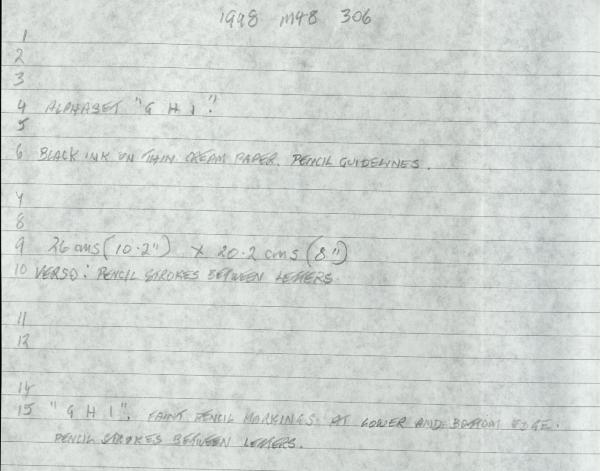 1998 M48 306
1
2
3
4 ALPHABET "G H I".
5
6 BLACK INK ON THIN CREAM PAPER. PENCIL GUIDELINES.
7
8
9 26 cms (10.2") X 20.2 cms (8")
10 VERSO: PENCIL STROKES BETWEEN LETTERS.
11
12
14
15 "G H I". FAINT PENCIL MARKINGS AT LOWER AND BOTTOM EDGE.
PENCIL STROKES BETWEEN LETTERS.